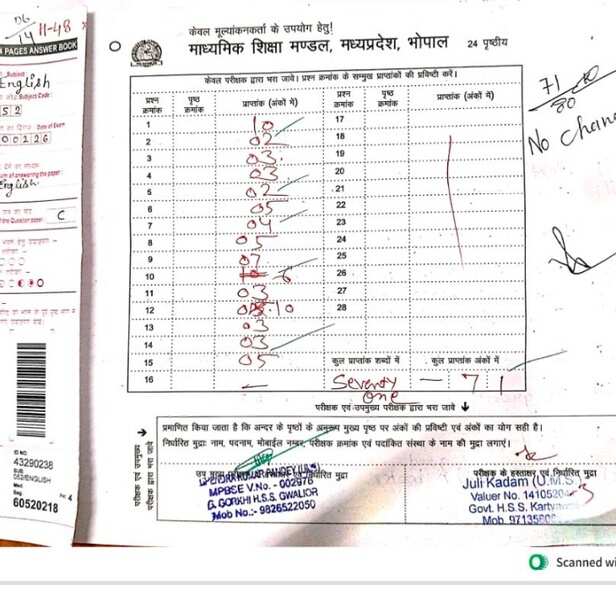 06
14 11-48
4 PAGES ANSWER BOOK
Subject
English
Subject Code
52
Date of Exam
00226
English
C
ID NO
43290238
SUB
052/ENGLISH
Med
Bag
60520218
PK 4
केवल मूल्यांकनकर्ता के उपयोग हेतु!
माध्यमिक शिक्षा मण्डल, मध्यप्रदेश, भोपाल 24 पृष्ठीय
केवल परीक्षक द्वारा भरा जावे। प्रश्न क्रमांक के सम्मुख प्राप्तांकों की प्रविष्टी करें।
प्रश्न क्रमांक पृष्ठ क्रमांक प्राप्तांक (अंकों में) प्रश्न क्रमांक पृष्ठ क्रमांक प्राप्तांक (अंकों में)
1 10 17
2 02 18
3 03 19
4 03 20
5 02 21
6 05 22
7 04 23
8 05 24
9 07 25
10 6 26
11 03 27
12 10 28
13 03
14 03
15 05 कुल प्राप्तांक शब्दों में कुल प्राप्तांक अंकों में
16 — Seventy one — 71
71
80
No Chan
परीक्षक एवं उपमुख्य परीक्षक द्वारा भरा जावे
प्रमाणित किया जाता है कि अन्दर के पृष्ठों के अनुरूप मुख्य पृष्ठ पर अंकों की प्रविष्टी एवं अंकों का योग सही है।
निर्धारित मुद्रा: नाम, पदनाम, मोबाईल नम्बर, परीक्षक क्रमांक एवं पदांकित संस्था के नाम की मुद्रा लगाएं।
परीक्षक एवं उपमुख्य परीक्षक द्वारा भरा जावे
उप मुख्य परीक्षक के हस्ताक्षर एवं निर्धारित मुद्रा
KUMAR PANDEY (U.M.S)
MPBSE V.No. - 002976
G. GORKHI H.S.S. GWALIOR
Mob No.:- 9826522050
परीक्षक के हस्ताक्षर एवं निर्धारित मुद्रा
Juli Kadam (U.M.S)
Valuer No. 14105204
Govt. H.S.S.
Mob. 97135
Scanned wi